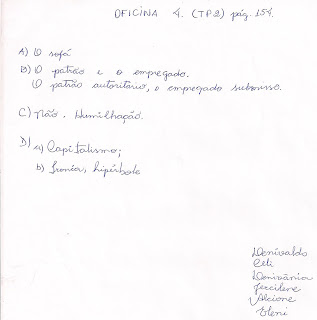 OFICINA 4. (TP2) pág. 154.
A) O sofá
B) O patrão e o empregado.
O patrão autoritário, o empregado submisso.
C) Não. Humilhação.
D) a) Capitalismo;
b) Ironia, hipérbole
Denivaldo
Celi
Denivânia
Jucilene
Alcione
Eleni